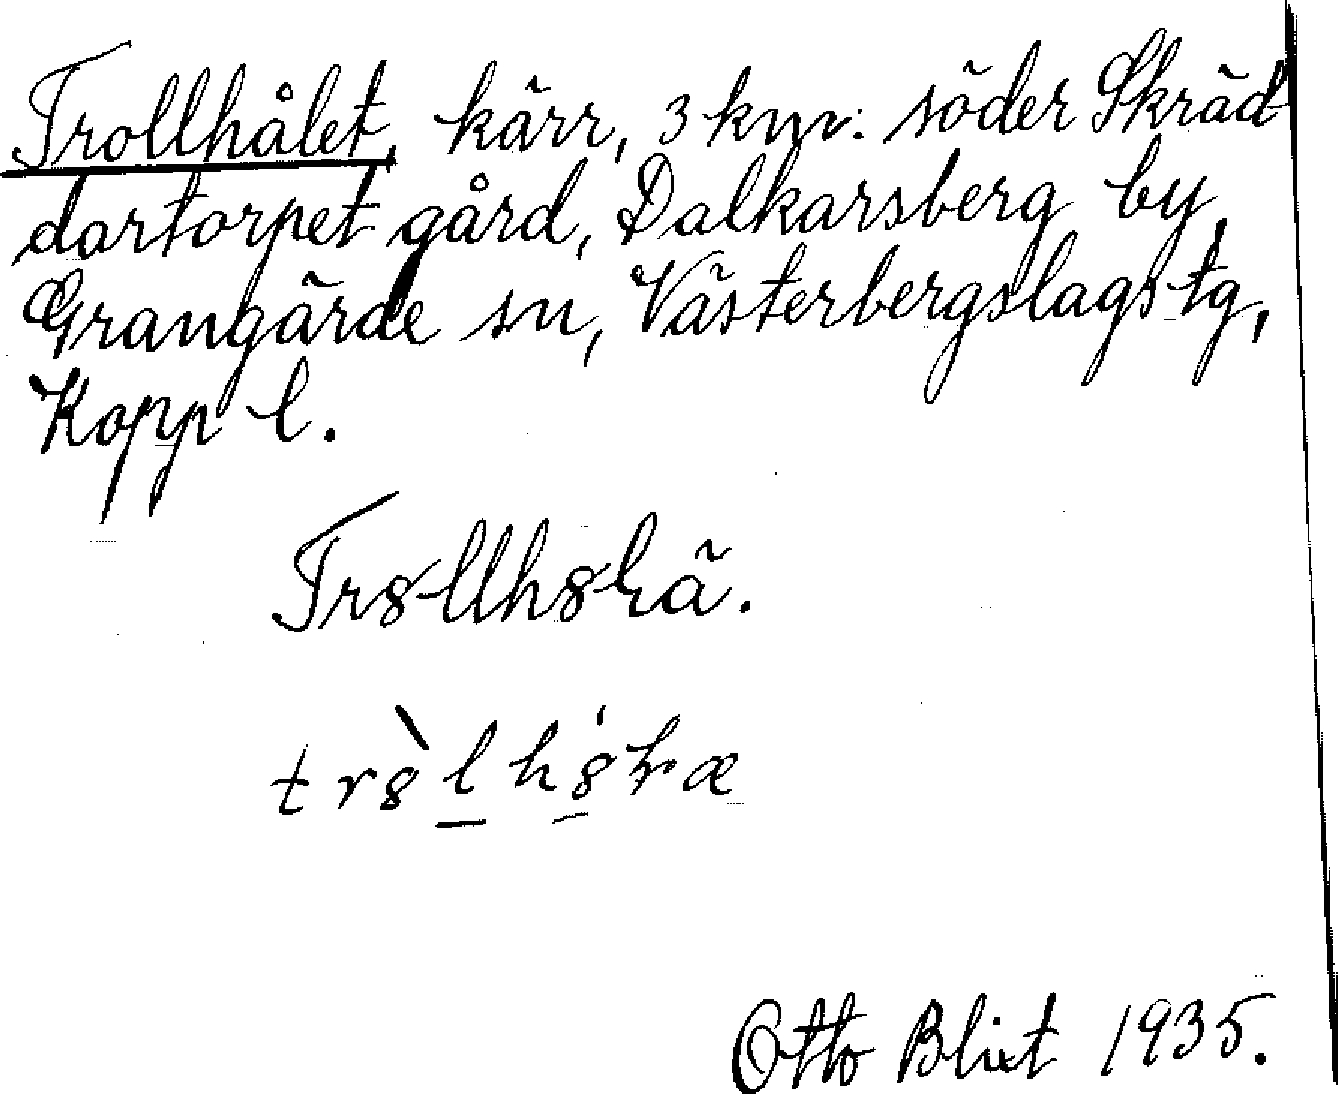 Trollhålet, kärr, 3 km. söder Skräd-
dartorpet gård, Dalkarsberg by,
Grangärde sn, Västerbergslags tg,
Kopp l.
Otto Blixt 1935.